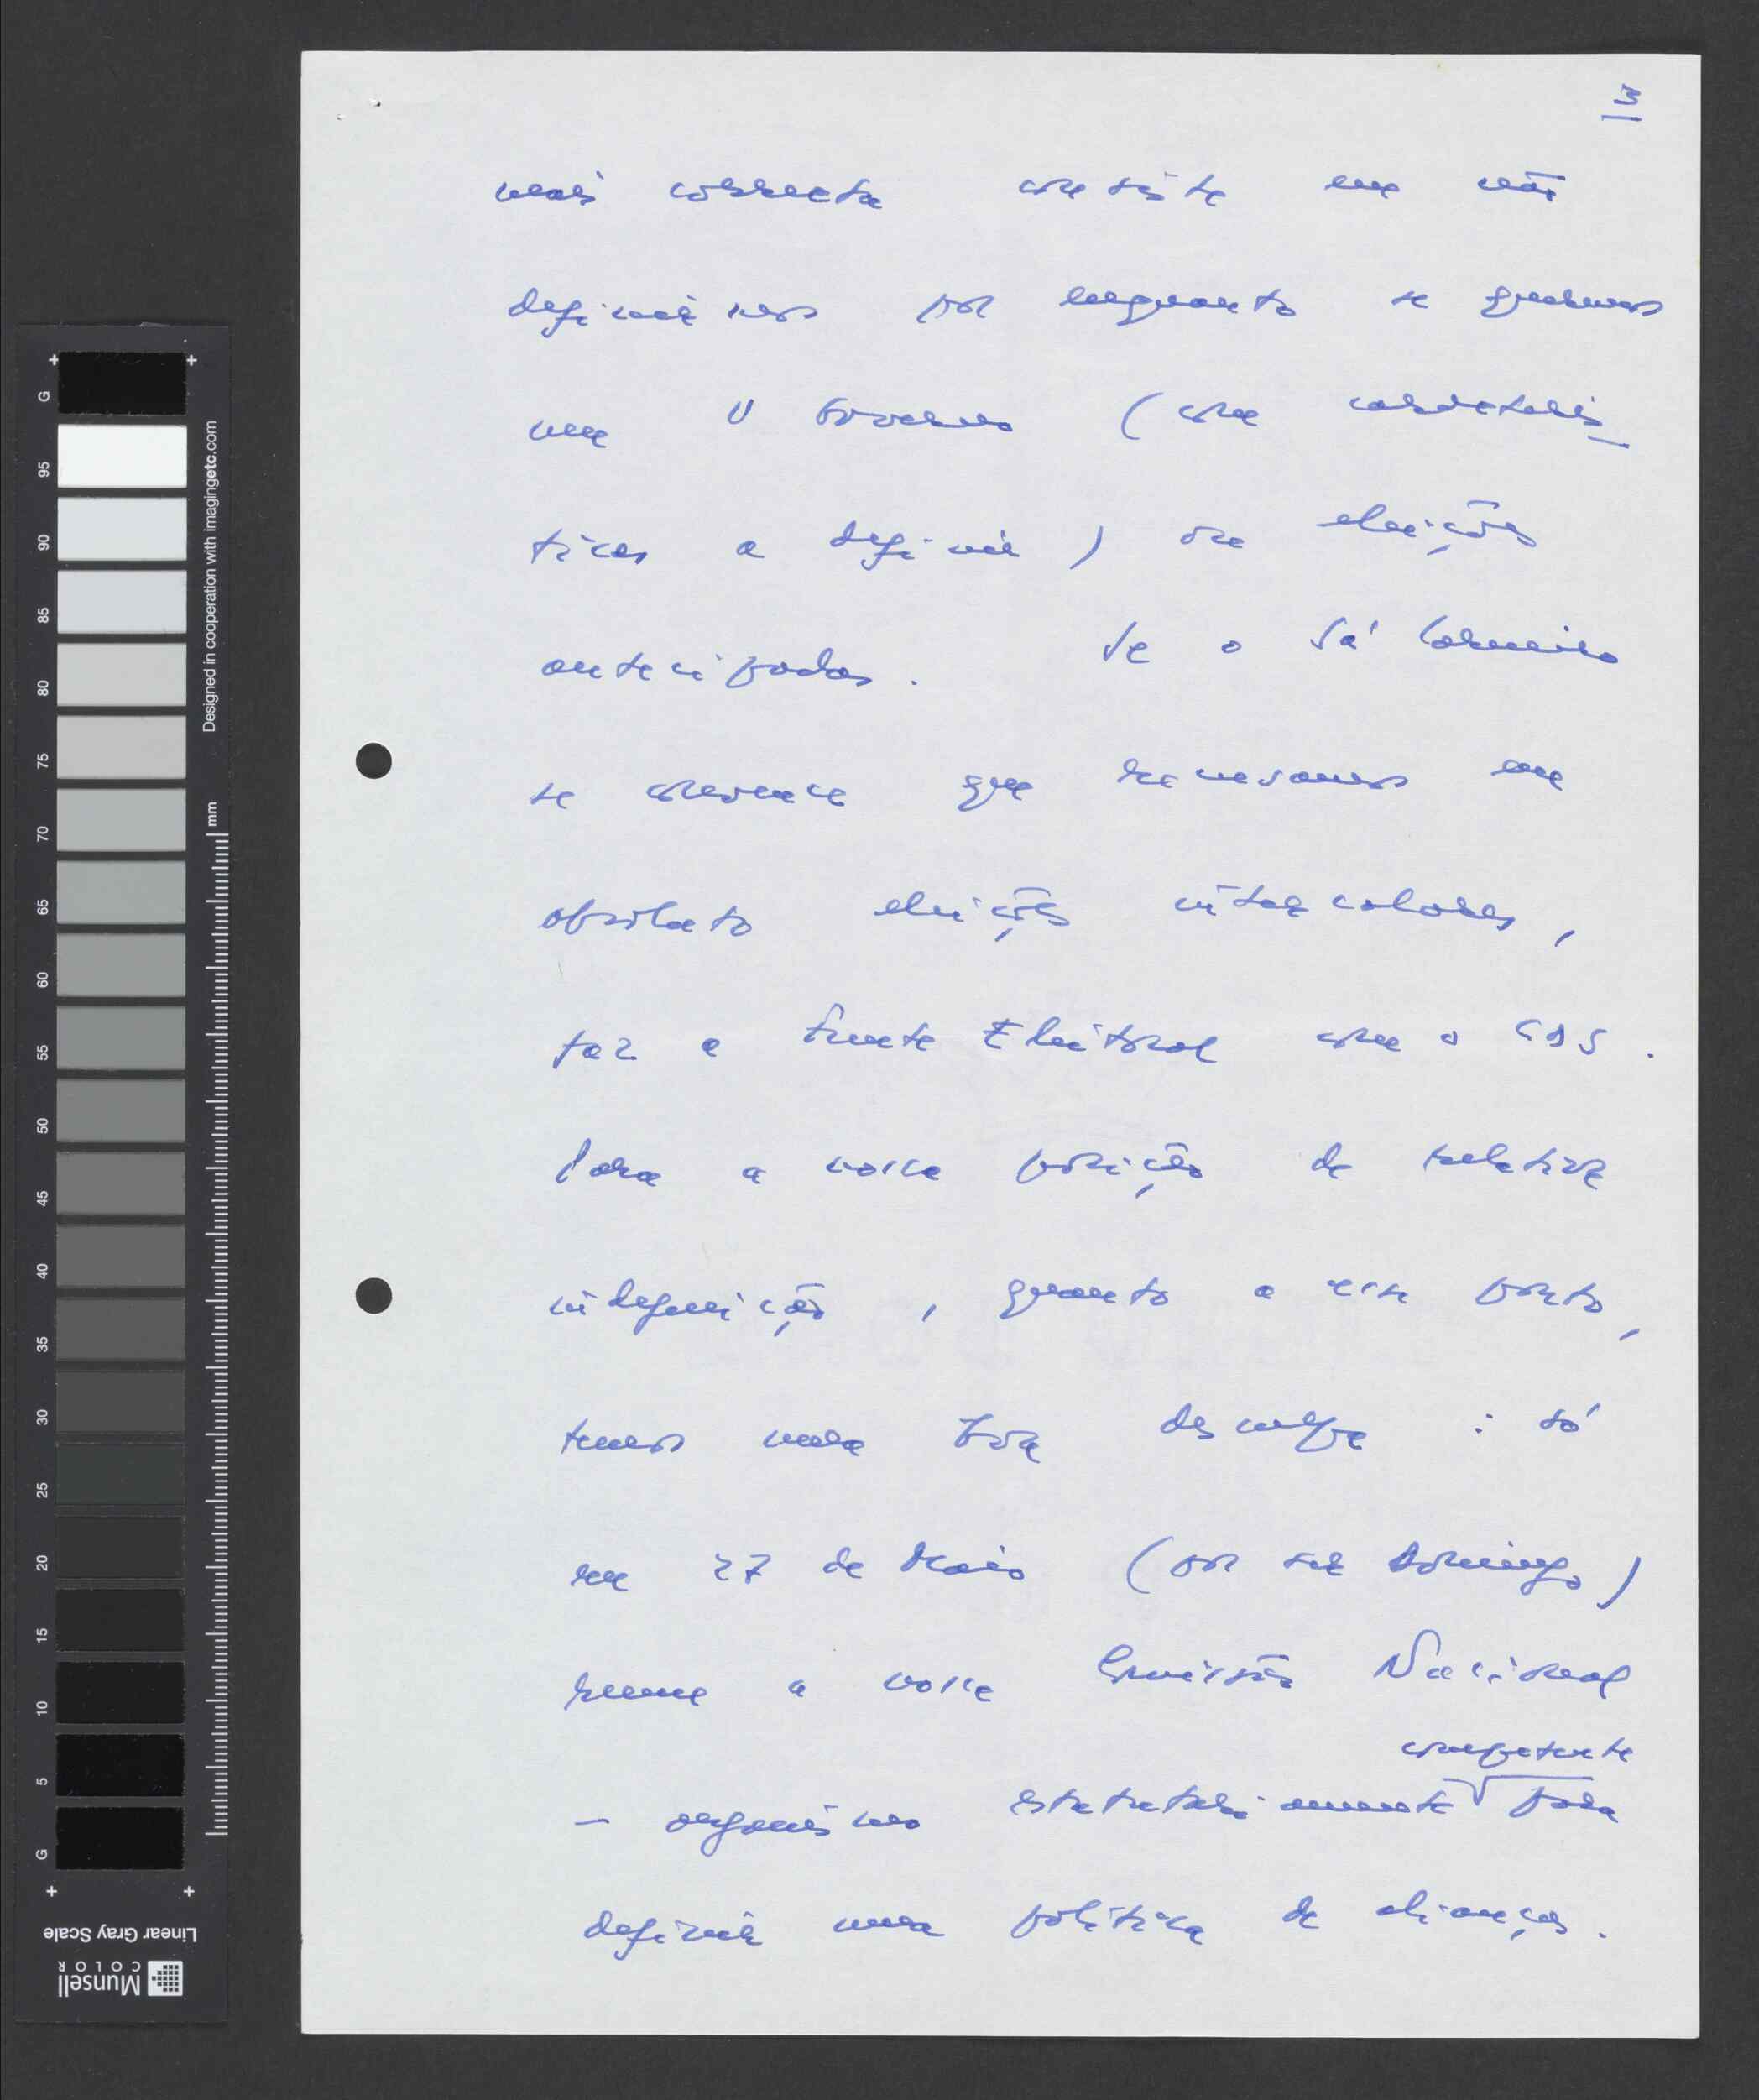 3
mais correcta consiste em não
definirmos por enquanto se queremos
um V Governo (com caracterís-
ticas a definir) ou eleições
antecipadas. Se o Sá Carneiro
se convence que recusamos em
absoluto eleições intercalares,
faz a Frente Eleitoral com o CDS.
Para a nossa posição de relativa
indefinição, quanto a esse ponto,
temos uma boa desculpa: só
em 27 de Maio (por ser Domingo)
reune a nossa Comissão Nacional
competente
– organismo estatutariamente para
definir uma política de alianças.
G
95
90
85
80
75
70
65
60
55
50
45
40
35
30
25
20
15
10
5
G
Designed in cooperation with imagingetc.com
mm
Linear Gray Scale
Munsell
COLOR